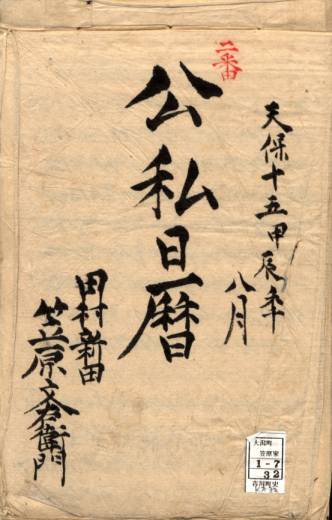 二番
天保十五甲辰年
八月
公私日暦
田村新田
笠原文右衛門
大潟町
笠原家
1-7
32